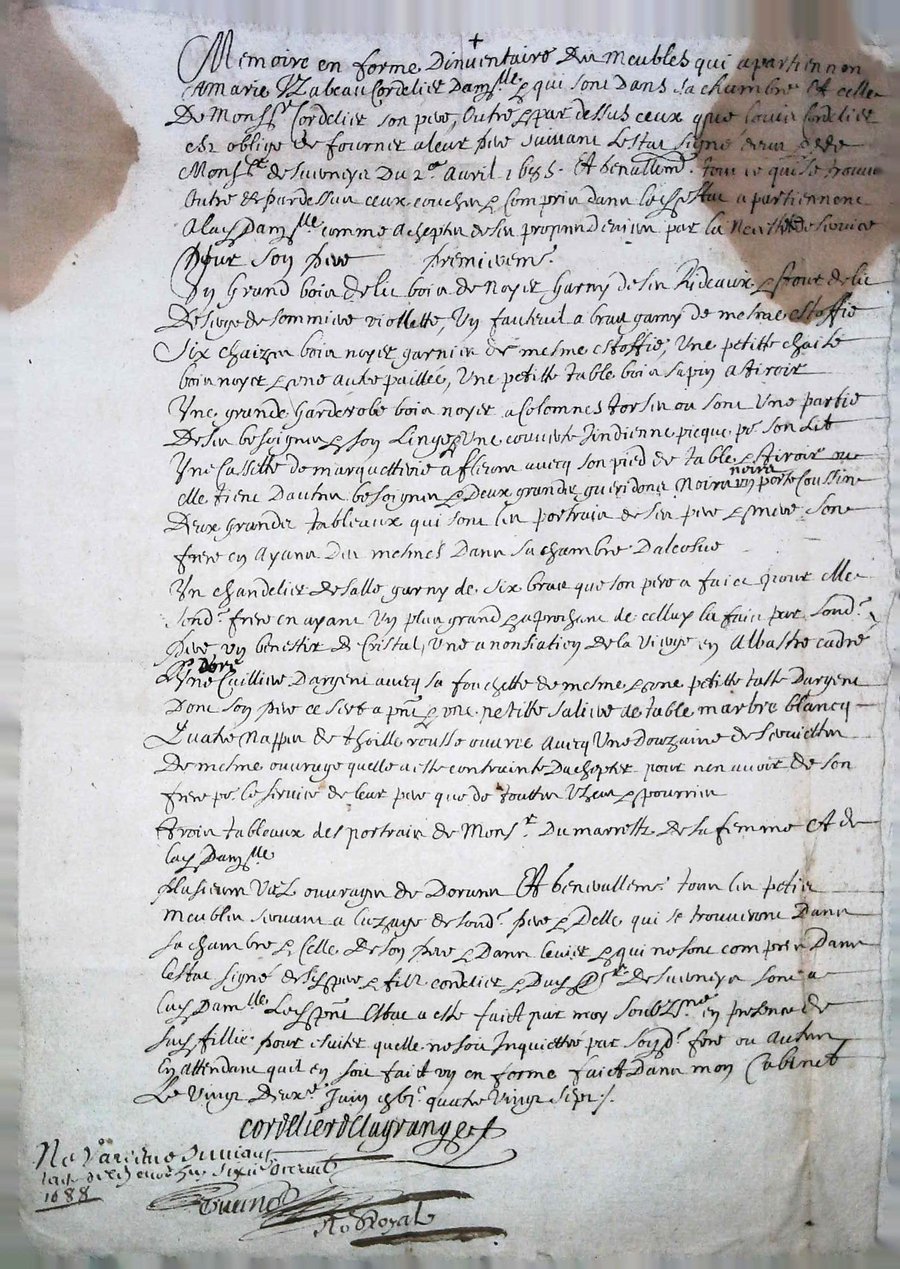 Memoire en forme Dinventaire Du Meubles qui apartiennen
A Marie Yzabeau Cordelier Dam.lle & qui sont Dans sa chambre Et celle
De Mons.r Cordelier son pere, Outre & par dessus ceux que Louis Cordelier
est obligé de fournir a leur pere suivant Lestat signé
Mons.r de Du 2.e Avril 168 Et tout ce qui se trouve
Outre & pardessus ceux couchés & Compris dans Led. estat apartiennent
A lad. Dam.lle comme Acheptés de ses propres Deniers par la de service
Pour Son pere premierem.t
Un Grand bois de lit bois de Noyer Garny de ses Rideaux & tour de lit
De serge de sommiere viollette, Un fauteuil a bras garny de mesme Estoffe
Six chaizes bois noyer garnies de mesme estoffe, Une petitte chaise
bois noyer & une autre paillée, Une petitte table bois sapin a tiroir
Une grande garderobe bois noyer a Colonnes torses ou sont Une partie
De ses besoignes & son Linge & Une couverte Jindienne picque p.r son Lit
Une Cassette de marquetterie a fleurs avecq son pied de table & tiroir ou
elle tient Dautres besoignes & Deux grands gueridons Noirs un porte Coussin
noire
Deux grands tableaux qui sont les portrais de ses pere & mere Son
frere en Ayant Du mesmes Dans sa chambre Dalcosve
Un chandelier de salle garny de Six bras que son pere a faict pour elle
Sond. frere en ayant Un plus grand & aprochant de cellux la faict par Sond.
Pere un benestier de Cristal, Une anonsiation de la Vierge en Albastre cadre
Doré
Une Cuilliere Dargent avecq sa fouchette de mesme & une petitte tasse Dargent
Dont son pere ce sert a pnt & une petitte saliere de table marbre blancq
Quatre Nappes de thoille rousse ouvree Avecq Une Douzaine de Serviettes
De mesme ouvrage quelle a esté contrainte Dachepter pour nen avoir de son
frere p.r le service de leur pere que de touttes Uzees & pourries
Trois tableaux des portrais de Mons.r Du marrette de sa femme et de
lad. Dam.lle
Plusieurs ouvrages de Et tous les petis
Meubles servant a luzage de sond. pere & Delle qui se trouveront Dans
sa chambre & Celle De son pere & Dans & qui ne sont compris Dans
Lestat signé desd. pere & fils cordelier & Dud. S.r de sont a
lad. Dam.lle Led. pnt Estat a esté faict par moy Soubz.né en presence de
Sad. fillie pour esviter quelle ne soit Inquiettée par Sond. frere ou Autres
En attendant quil en soit faict un en forme faict Dans mon Cabinet
Le Vingt Deux.e Juin quatre Vingt Sept /.
cordelier de lagrange
1688
No Royal